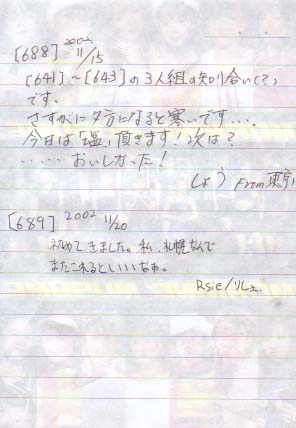 [688] 2002 11/15
[641]～[643]の3人組の知り合い(?)
です。
さすがに夕方になると寒いです…。
今日は「塩」頂きます!次は?
……おいしかった!
しょう From 東京
[689] 2002 11/20
初めてきました。私、札幌なんで
またこれるといいなぁ。
Rsie/りしぇ